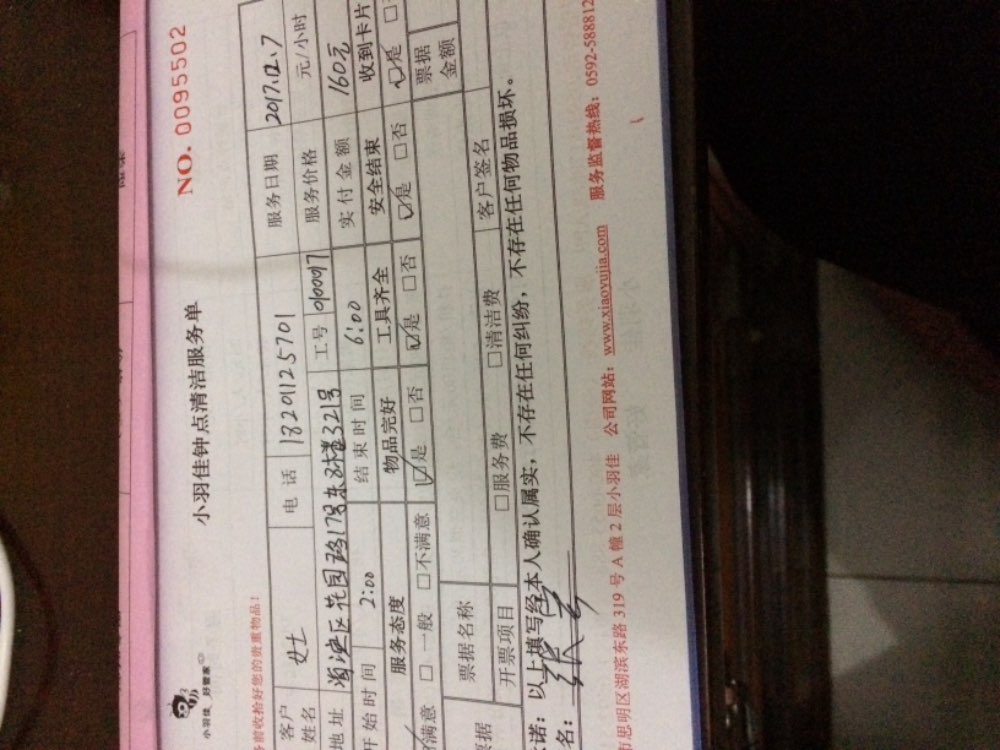 小羽佳 好管家
小羽佳钟点清洁服务单
NO. 0095502
务前收拾好您的贵重物品!
客户姓名 女士 电 话 13201125701 服务日期 2017.12.7
地址 海淀区花园路17号东 工号 010097 服务价格 元/小时
开始时间 2:00 结束时间 6:00 实付金额 160元
服务态度 物品完好 工具齐全 安全结束 收到卡片
☑满意 □ 一般 □不满意 ☑是 □否 ☑是 □否 ☑是 □否 ☑是 □
票据名称 票据金额
票据 开票项目 □服务费 □清洁费 客户签名
诺：以上填写经本人确认属实，不存在任何纠纷，不存在任何物品损坏。
名：
市思明区湖滨东路 319 号 A 幢 2 层小羽佳 公司网站：www.xiaoyujia.com 服务监督热线：0592-588812